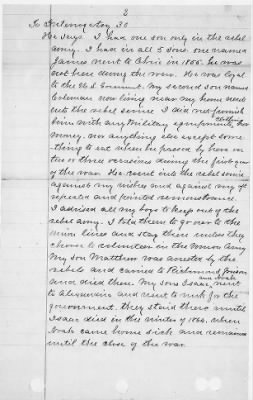 2
To Interrogatory 30
He says. I had one son only in the rebel
army. I had in all 5 sons. one named
James went to Ohio in 1856. he was
not here during the war. He was loyal
to the U.S. Government. My second son named
Coleman now living near my home went
into the rebel service. I did not furnish
him with any Military equipments, clothing
money nor anything else except some-
thing to eat when he passed by here on
two or three occasions during the first year
of the war. He went into the rebel service
against my wishes and against my oft
repeated and pointed remonstrance.
I advised all my boys to keep out of the
rebel army. I told them to go over to the
union lines and stay there unless they
choose to volunteer in the Union Army
My son Matthew was arrested by the
rebels and carried to Richmond prison
and died there. My sons Isaac & Noah went
to Alexandria and went to work for the
government. they staid there until
Isaac died in the winter of 1864. when
Noah came home sick and remained
until the close of the war